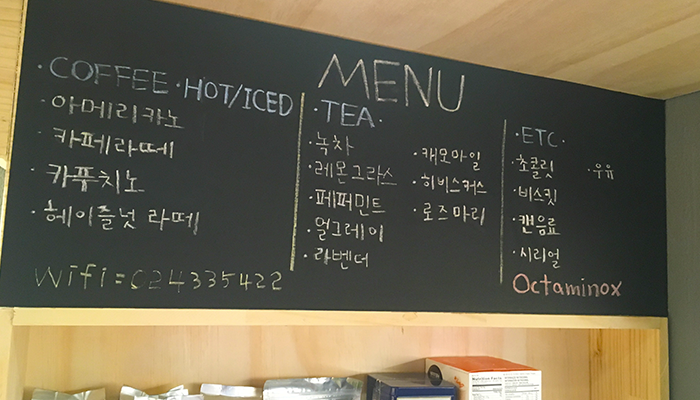 MENU
· COFFEE · HOT/ICED
· 아메리카노
· 카페라떼
· 카푸치노
· 헤이즐넛 라떼
Wifi = 024335422
· TEA ·
· 녹차
· 레몬그라스
· 페퍼민트
· 얼그레이
· 라벤더
· 캐모마일
· 히비스커스
· 로즈마리
· ETC ·
· 초콜릿
· 비스킷
· 캔음료
· 시리얼
· 우유
Octaminox
Nutrition Facts